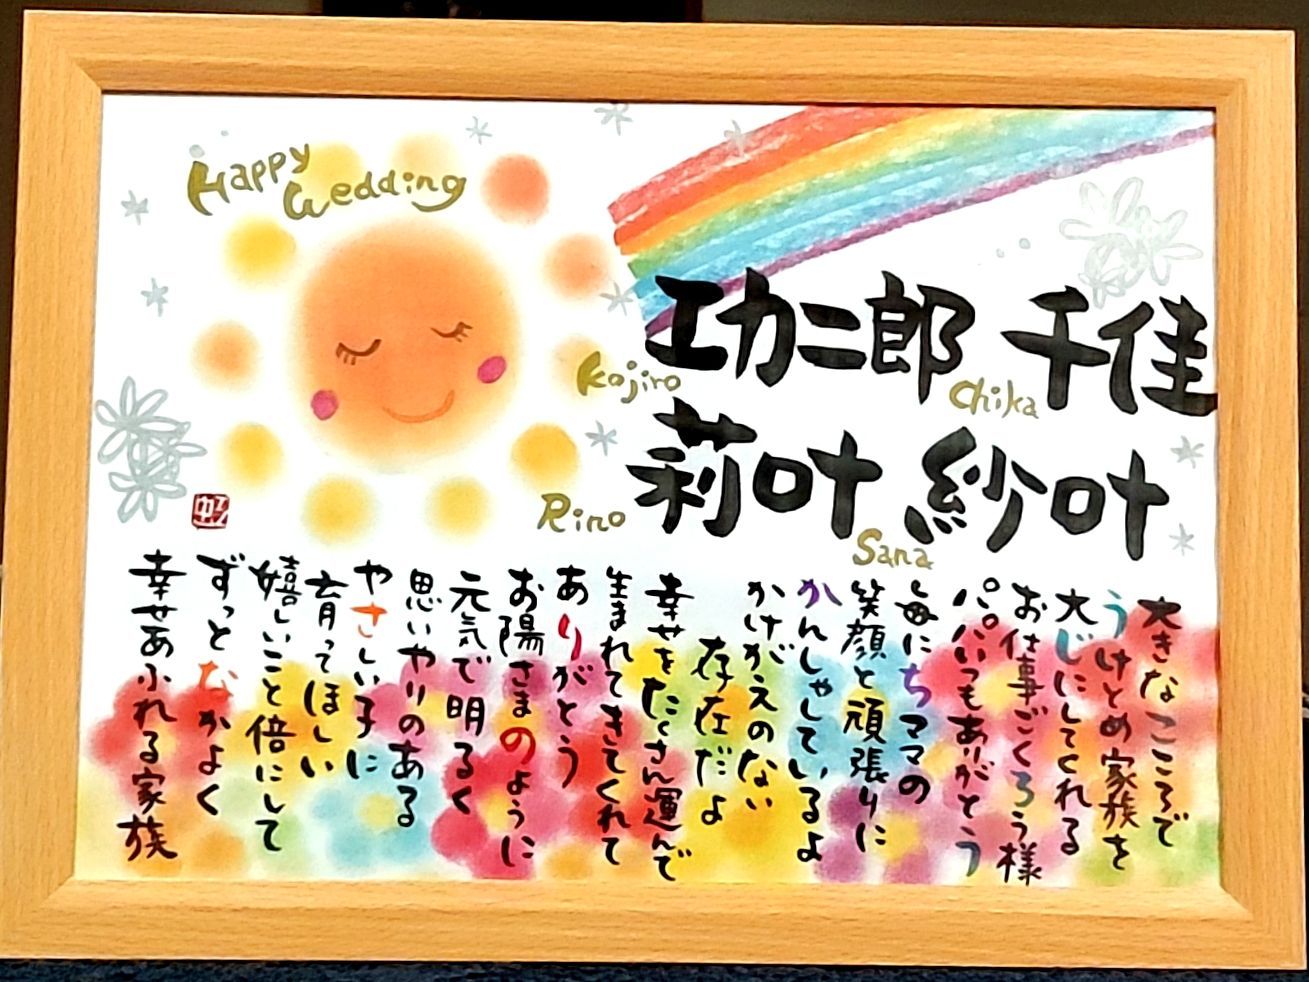 Happy
Wedding
功二郎 千佳
Kojiro
Chika
莉叶 紗叶
Rino
Sana
大きなこころで
うけとめ家族を
大じにしてくれる
お仕事ごくろう様
パパいつもありがとう
毎にちママの
笑顔と頑張りに
かんしゃしているよ
かけがえのない
存在だよ
幸せをたくさん運んで
生まれてきてくれて
ありがとう
お陽さまのように
元気で明るく
思いやりのある
やさしい子に
育ってほしい
嬉しいこと倍にして
ずっとなかよく
幸せあふれる家族